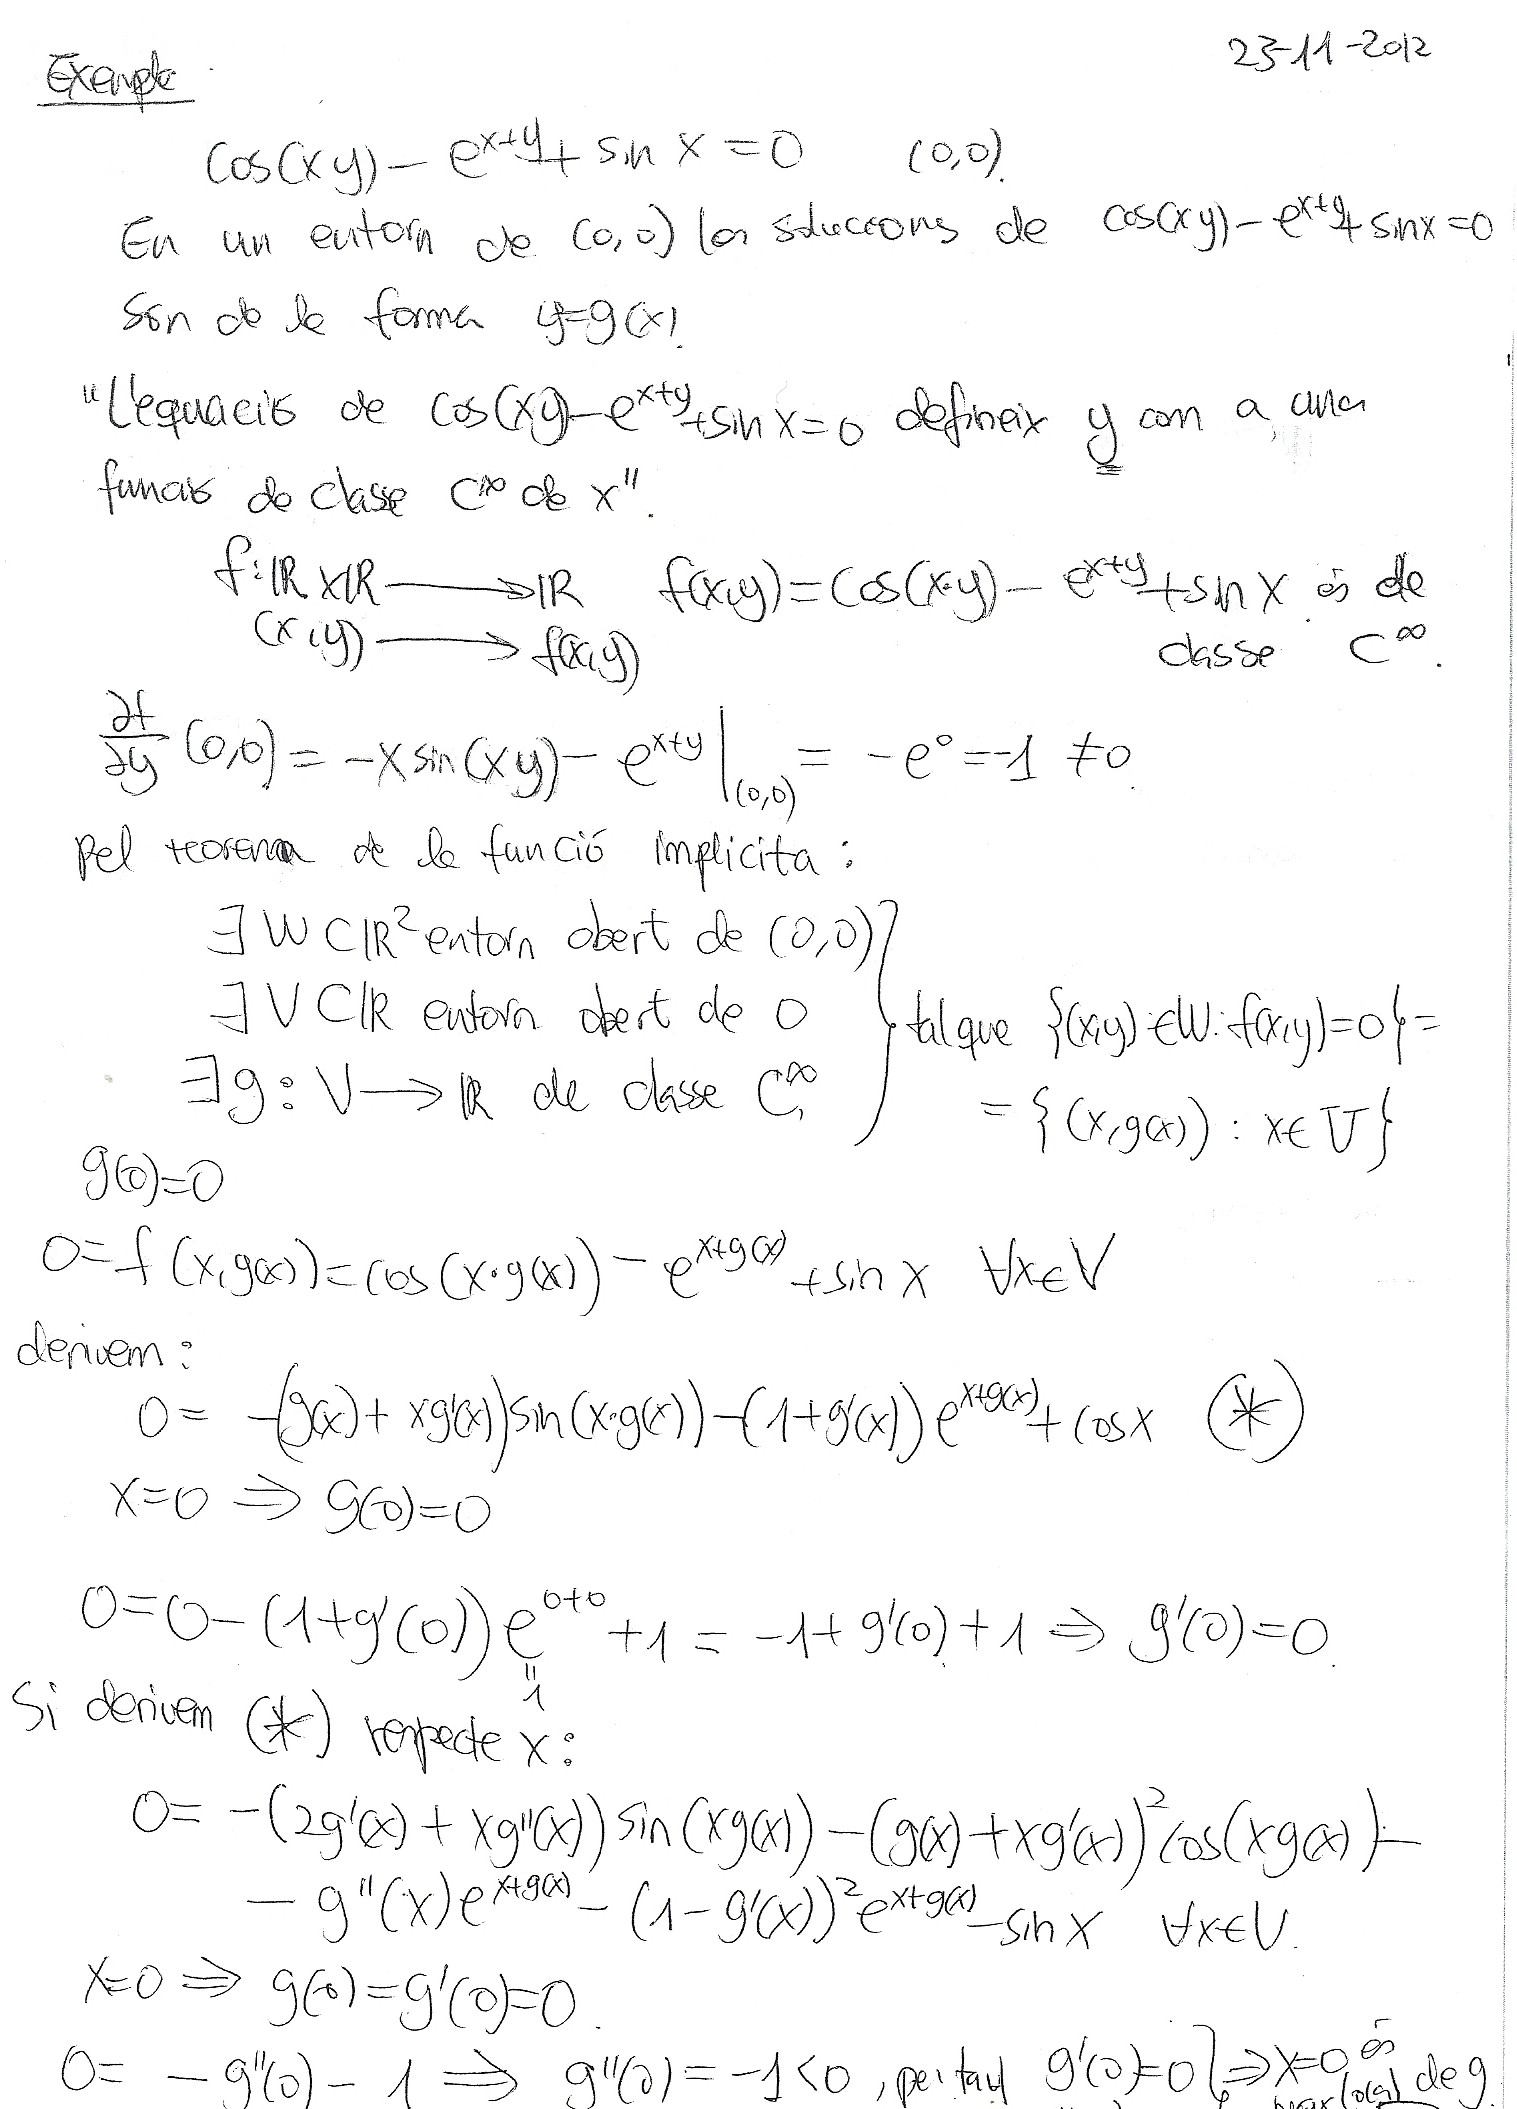 23-11-2012
Exemple
cos(xy) - e^{x+y} + sin x = 0 (0,0).
En un entorn de (0,0) les solucions de cos(xy) - e^{x+y} + sin x = 0
són de la forma y=g(x).
"L'equació de cos(xy) - e^{x+y} + sin x = 0 defineix y com a una
funció de classe C^∞ de x".
f: ℝ×ℝ ⟶ ℝ f(x,y) = cos(x·y) - e^{x+y} + sin x és de
(x,y) ⟶ f(x,y) classe C^∞.
∂f/∂y (0,0) = -x sin(xy) - e^{x+y} |_{(0,0)} = -e^0 = -1 ≠ 0.
Pel teorema de la funció implicita:
∃ W ⊂ ℝ² entorn obert de (0,0)
∃ V ⊂ ℝ entorn obert de 0 } tal que {(x,y) ∈ W : f(x,y)=0} =
∃ g: V ⟶ ℝ de classe C^∞, = {(x,g(x)) : x ∈ U}
g(0)=0
0 = f(x,g(x)) = cos(x·g(x)) - e^{x+g(x)} + sin x ∀x∈V
derivem:
0 = -(g(x) + xg'(x)) sin(x·g(x)) - (1+g'(x)) e^{x+g(x)} + cos x (*)
x=0 ⇒ g(0)=0
0 = 0 - (1+g'(0)) e^{0+0} + 1 = -1 + g'(0) + 1 ⇒ g'(0)=0.
"
1
Si derivem (*) respecte x:
0 = -(2g'(x) + xg''(x)) sin(xg(x)) - (g(x) + xg'(x))² cos(xg(x)) -
- g''(x) e^{x+g(x)} - (1 - g'(x))² e^{x+g(x)} - sin x ∀x∈V.
x=0 ⇒ g(0)=g'(0)=0.
0 = -g''(0) - 1 ⇒ g''(0) = -1 < 0, per tant g'(0)=0 } ⇒ x=0 és
de g.